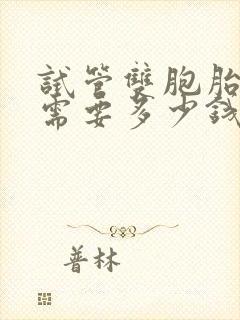 試管雙胞胎
需要多少錢
普林